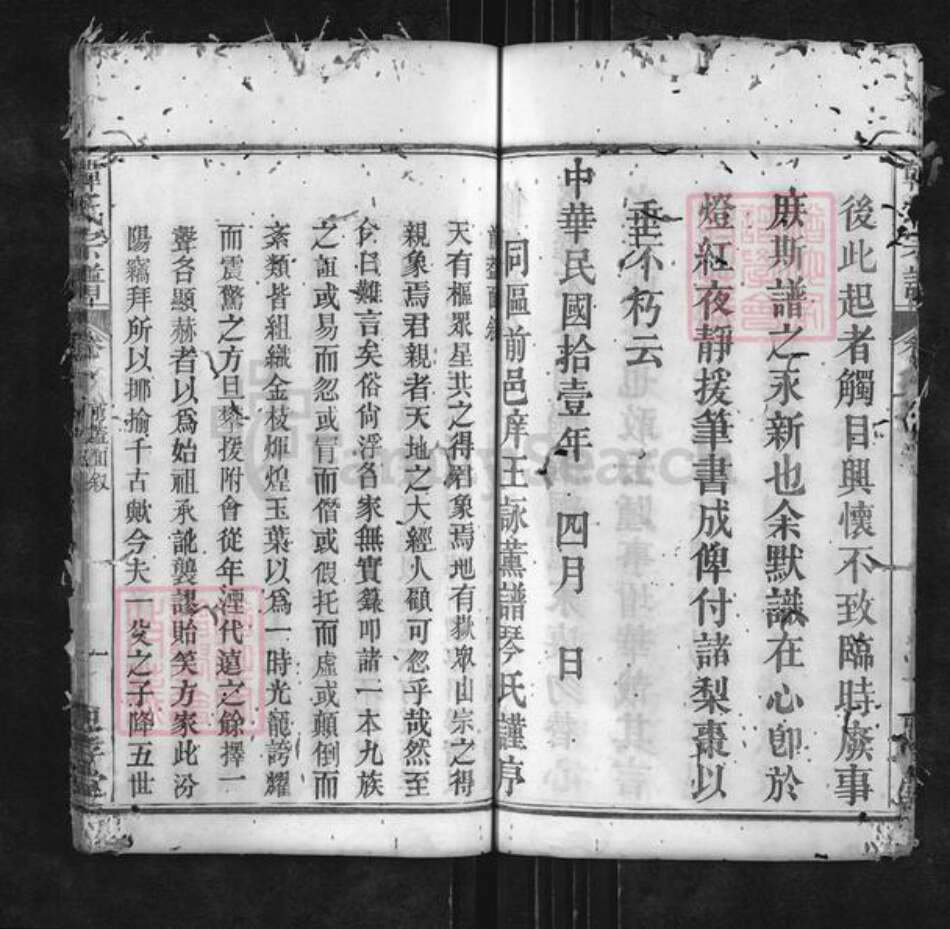 後此起者觸目興懷不致臨時廢事
庶斯譜之永新也余默識在心卽於
燈紅夜靜援筆書成俾付諸梨棗以
垂不朽云
中華民國拾壹年 四月 日
同區前邑庠王詠薰譜琴氏謹序
天有樞眾星共之得君象焉地有嶽眾山宗之得
親象焉君親者天地之大經人顧可忽乎哉然至
今日難言矣俗尙浮各家無實錄叩諸一本九族
之誼或易而忽或冒而僭或假托而虛或顛倒而
紊類皆組織金枝煇煌玉葉以爲一時光龍誇耀
而震驚之方且攀援附會從年湮代遠之餘擇一
聲名顯赫者以爲始祖承訛襲謬貽笑方家此汾
陽竊拜所以揶揄千古歟今夫一父之子降五世
FamilySearch